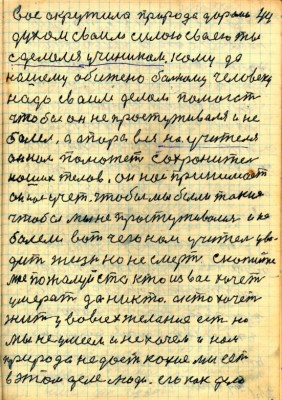 вас окружила природа дорогая 44
духом своим силою своею ты
сделался учеником, кому до
нашему обижено больному человеку
надо своим делом помогат
чтобы он не простуживался и не
болел, а
учителя
он нам поможет сохранител
наших телов, он нас принимает
он на учет. чтобы мы были такия
чтобы мы не простуживалися и не
болели вот чего нам учител вво
дит жизню но не смерт. скажите
мне пожалуйста, кто из вас хочет
умерат да никто. а кто хочет
жит у всех желания ест но
мы не умеем и не хочем и нам
природа не даст какие мы ест
в этом деле люди. ег как дело